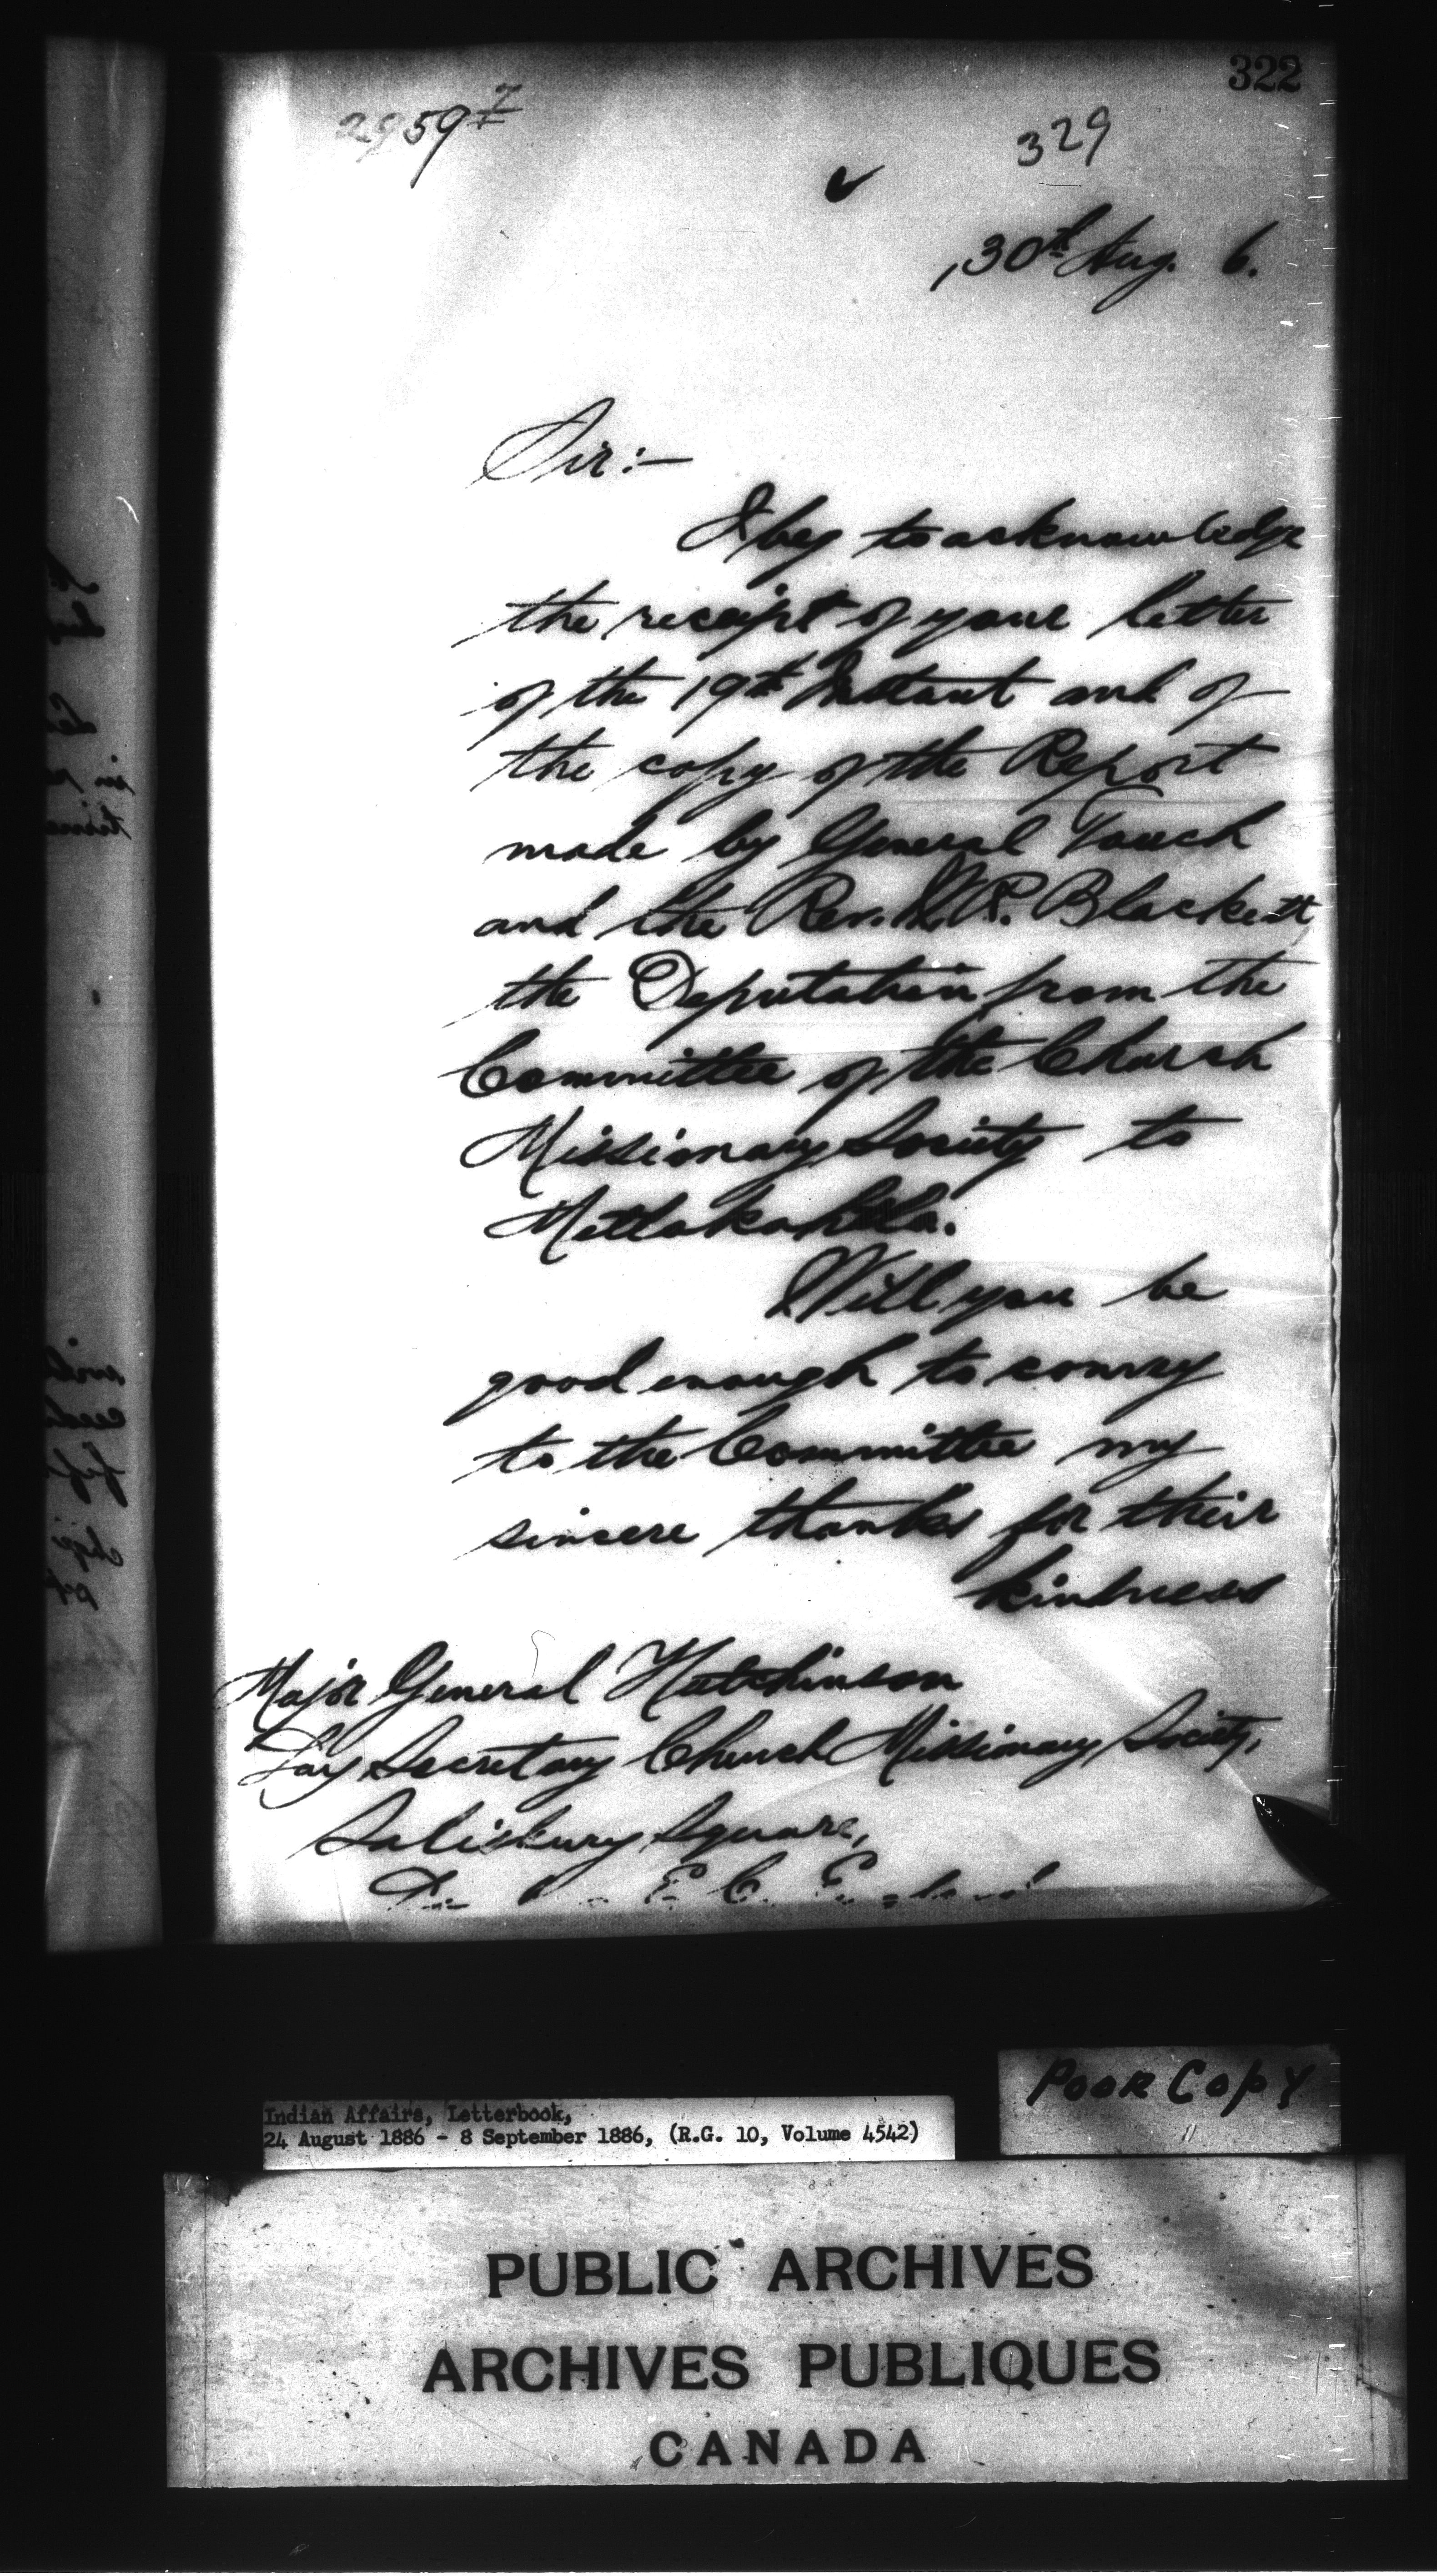 322
29597
329
30th Aug. 6.
Sir:-
I beg to acknowledge
the receipt of your letter
of the 19th Instant and of
the copy of the Report
made by General Touch
and the Rev. W. R. Blackett
the Deputation from the
Committee of the Church
Missionary Society to
Metlakahtla.
Will you be
good enough to convey
to the Committee my
sincere thanks for their
kindness
Major General Hutchinson
Lay Secretary Church Missionary Society,
Salisbury Square,
E. C. England
Poor Copy
Indian Affairs, Letterbook,
24 August 1886 - 8 September 1886, (R.G. 10, Volume 4542)
PUBLIC ARCHIVES
ARCHIVES PUBLIQUES
CANADA